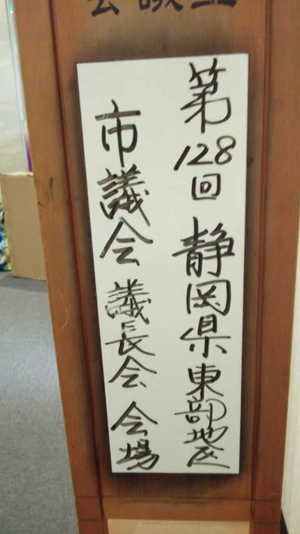 第128回静岡県東部地区
市議会議長会会場